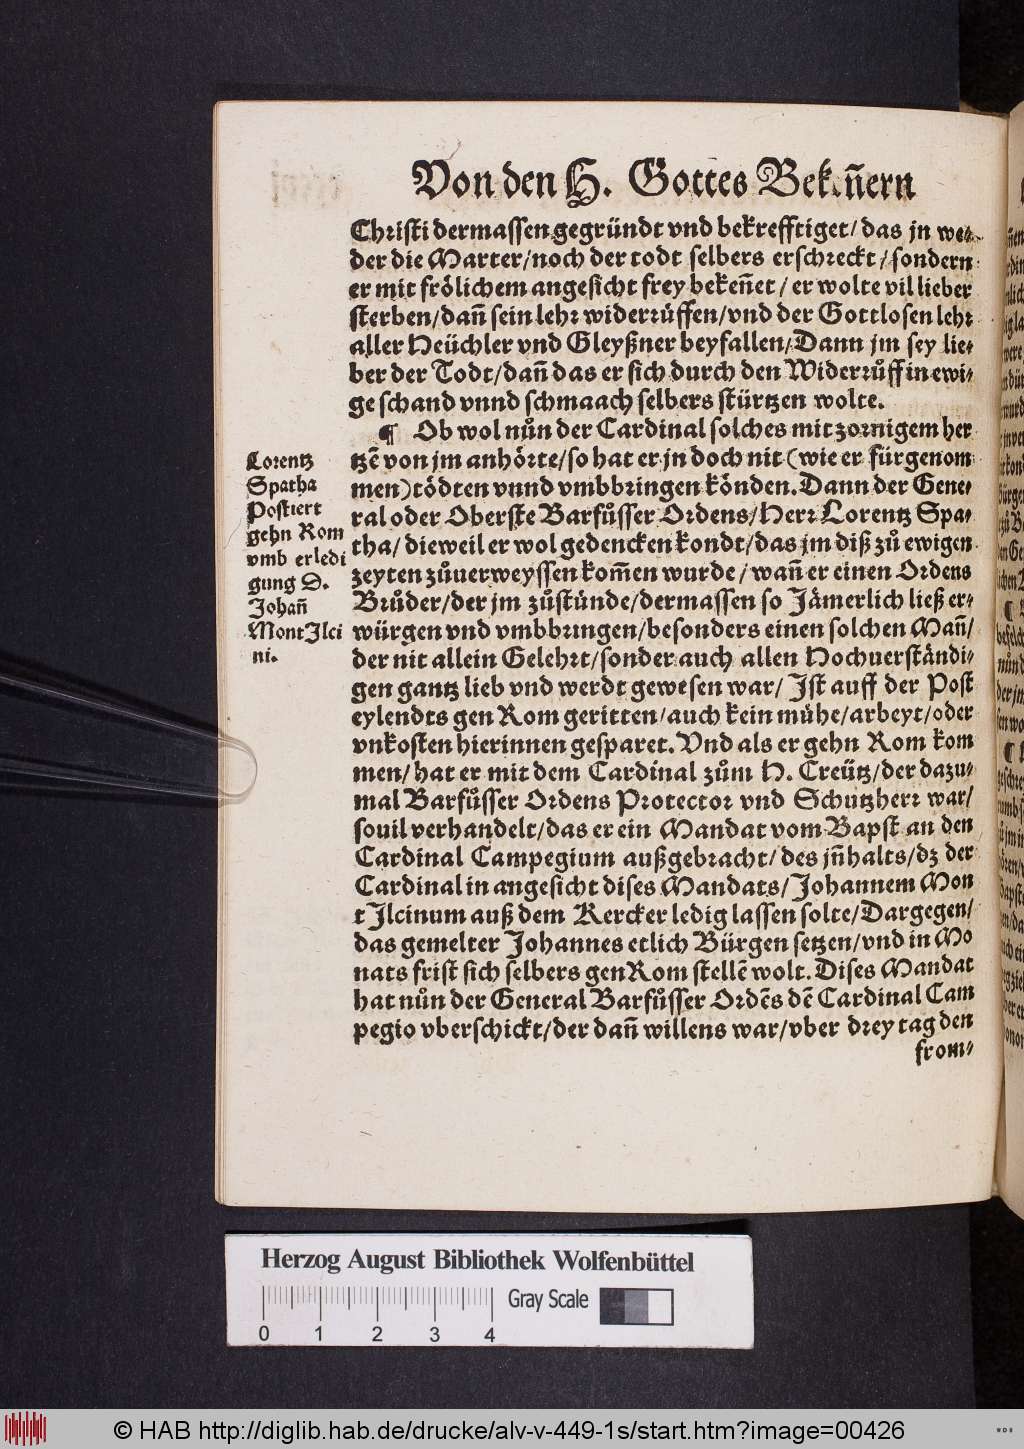 Von den H. Gottes Bekeñern
Christi dermassen gegründt vnd bekrefftiget/ das jn we⸗
der die Marter/ noch der todt selbers erschreckt/ sondern
er mit frölichem angesicht frey bekeñet/ er wolte vil lieber
sterben/ dañ sein lehr widerrůffen/ vnd der Gottlosen lehr
aller Heüchler vnd Gleyßner beyfallen/ Dann jm sey lie⸗
ber der Todt/ dañ das er sich durch den Widerrůff in ewi⸗
ge schand vnnd schmaach selbers stürtzen wolte.
¶ Ob wol nůn der Cardinal solches mit zornigem her
tzē von jm anhörte/ so hat er jn doch nit (wie er fürgenom
men) tödten vnnd vmbbringen könden. Dann der Gene⸗
ral oder Oberste Barfůsser Ordens/ Herr Lorentz Spa⸗
tha/ dieweil er wol gedencken kondt/ das jm diß zů ewigen
zeyten zůuerweyssen kom̄en wurde/ wañ er einen Ordens
Brůder/ der jm zůstünde/ dermassen so Jämerlich ließ er⸗
würgen vnd vmbbringen/ besonders einen solchen Mañ/
der nit allein Gelehrt/ sonder auch allen Hochuerständi⸗
gen gantz lieb vnd werdt gewesen war/ Jst auff der Post
eylendts gen Rom geritten/ auch kein mühe/ arbeyt/ oder
vnkosten hierinnen gesparet. Vnd als er gehn Rom kom
men/ hat er mit dem Cardinal zům H. Creütz/ der dazu⸗
mal Barfůsser Ordens Protector vnd Schutzherr war/
souil verhandelt/ das er ein Mandat vom Bapst an den
Cardinal Campegium außgebracht/ des jñhalts/ dz der
Cardinal in angesicht dises Mandats/ Johannem Mon
t Jlcinum auß dem Kercker ledig lassen solte/ Dargegen/
das gemelter Johannes etlich Bürgen setzen/ vnd in Mo
nats frist sich selbers gen Rom stellē wolt. Dises Mandat
hat nůn der General Barfůsser Ordēs dē Cardinal Cam
pegio vberschickt/ der dañ willens war/ vber drey tag den
from⸗
Lorentz
Spatha
Postiert
gehn Rom
vmb erledi
gung D.
Johañ
Mont Jlci
ni.
Herzog August Bibliothek Wolfenbüttel
Gray Scale
0 1 2 3 4
© HAB http://diglib.hab.de/drucke/alv-v-449-1s/start.htm?image=00426